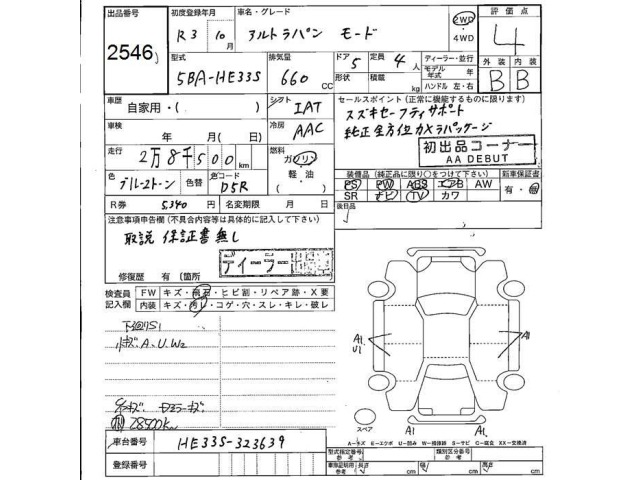 出品番号 初度登録年月 車名・グレード 評価点
2546 R3 10月 アルトラパン モード 2WD ・ 4WD 4
型式 排気量 ドア 定員 ディーラー・並行
5BA-HE33S 660 CC 5 4人 モデル年式 年
形状 積載 kg ハンドル 左・右
外装 内装
B B
車歴 シフト セールスポイント (正常に機能するものに限ります)
自家用・( ) IAT スズキセーフティサポート
車検 冷房 純正全方位カメラパッケージ
年 月( 日) AAC
初出品コーナー
AA DEBUT
走行 燃料
2万8千500km ガソリン
軽油
( )
色 色替 色コード
ブルー2トーン D5R
装備品 (純正品に限り○をつけて下さい) 新車保証書
PS PW ABS エアB AW 有・無
SR ナビ TV カワ
R券 5,340円 名変期限 月 日
後日品
注意事項申告欄 (不具合内容等は具体的に記入して下さい)
取説 保証書無し
ディーラー
修復歴 有 (箇所
検査員記入欄 FW キズ・飛石・ヒビ割・リペア跡・X要
内装 キズ・汚レ・コゲ・穴・スレ・キレ・破レ
下廻りS1
A.U.W2
28500km
A1
U1
A1
スペア A1 A1
A-キズ E-エクボ U-凹み W-補修跡 S-サビ C-腐食 XX-交換済
車台番号 HE33S-323639
型式指定番号 類別区分番号
参考 参考
登録番号 車車証明用 参考 長さ cm 幅 cm 高さ cm